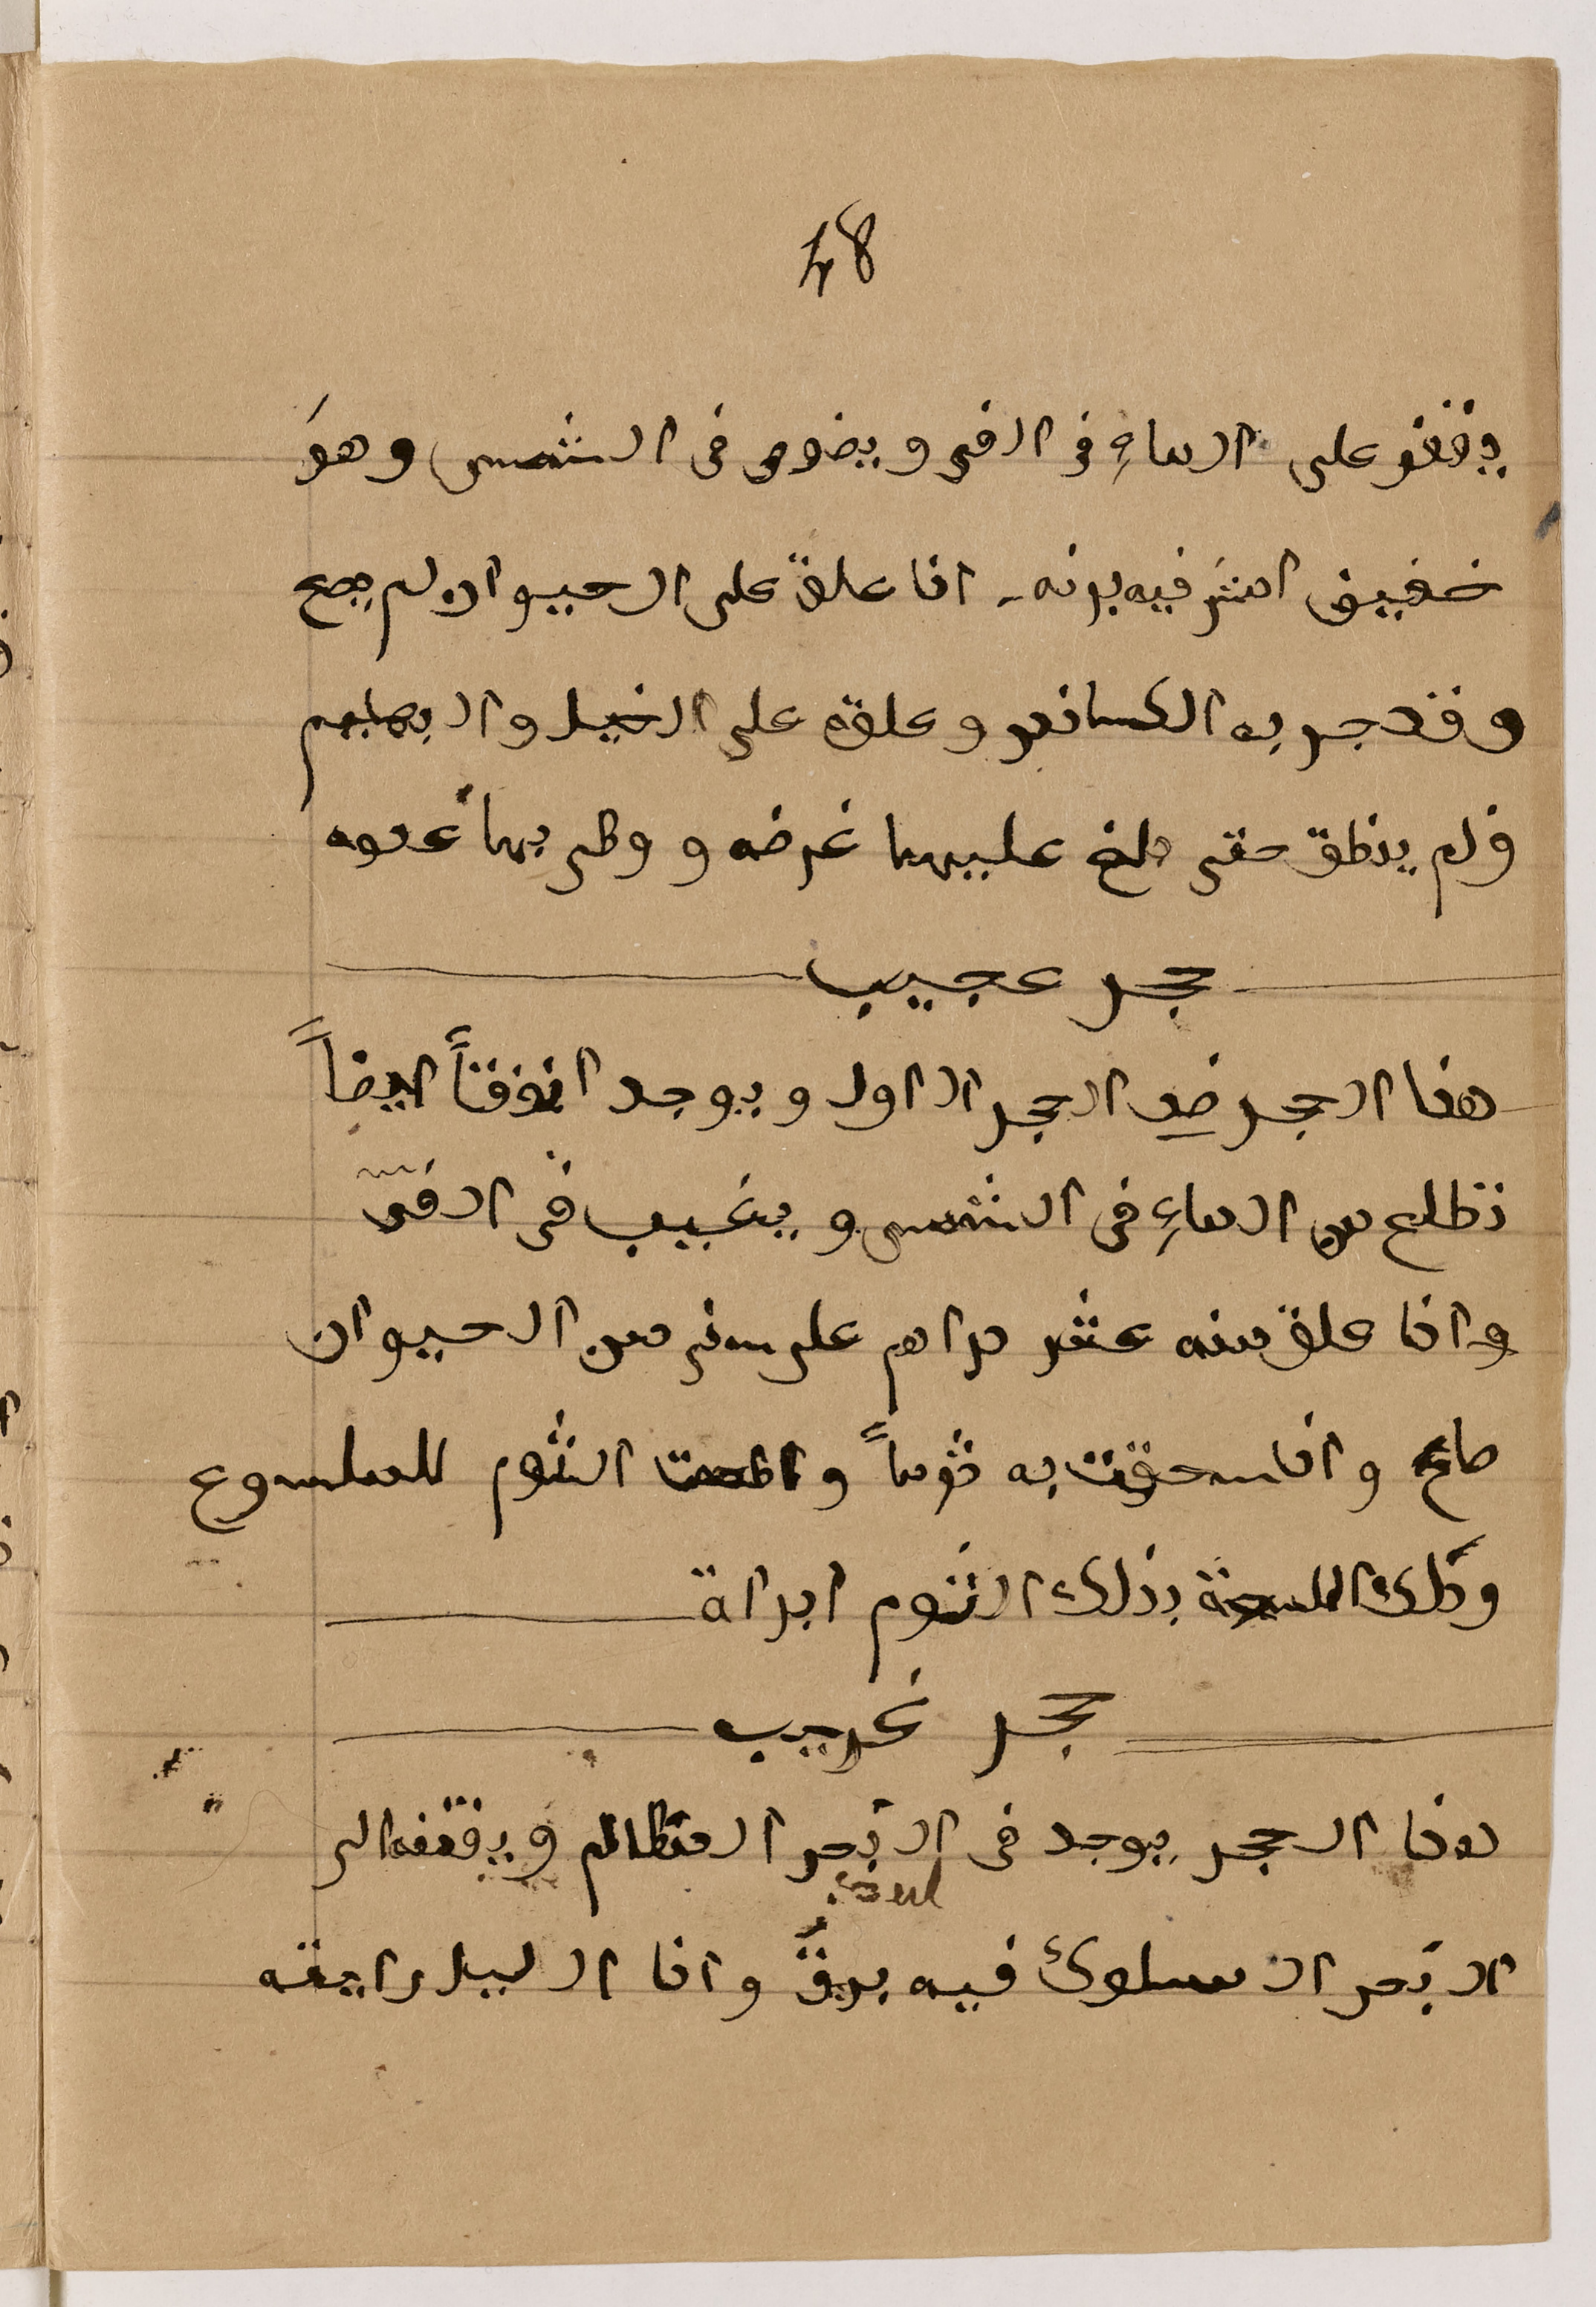 48
يقفو على الماءِ فى الفى ويضوى فى الشمس وهوَ
خفيف اكثر فيه برنه . اذا علق على الحيوان لم يصح
وقد جر به الكساندر وعلقه على الخيل والبهايم
ولم ينطق حتى بلغ عليهما غرضه و وطى بهما عدوه
حجر عجيب
هذا الحجر ضد الحجر الاول ويوجد ايضاً
تطلع من الماءِ فى الشمس ويغيب فى الفى
واذا علق منه عشر دراهم على شى من الحيوان
صاح واذا سحقت به ثوماً واطعمت الثوم للملسوع
ودلك اللسعة بذلك الثوم ابراة
حجر غريب
هذا الحجر يوجد فى البحر المظلم ويقفه الى
البحر المسلوك فيه بريق واذا الليل رايته